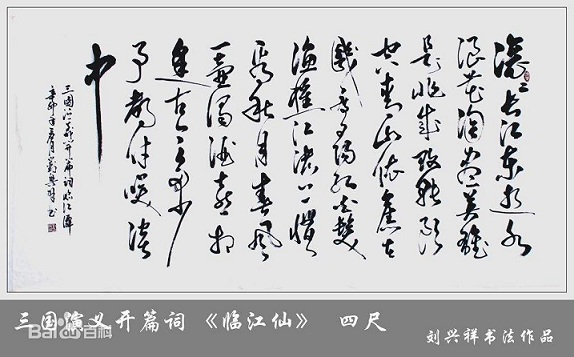 滚滚长江东逝水
浪花淘尽英雄
是非成败转头
空青山依旧在
几度夕阳红白髮
渔樵江渚上惯
看秋月春风
一壶浊酒喜相
逢古今多少
事都付笑谈
中
三国演义开篇词临江仙
辛卯年夏月刘兴祥书
三国演义开篇词 《临江仙》 四尺
Bai百科
刘兴祥书法作品